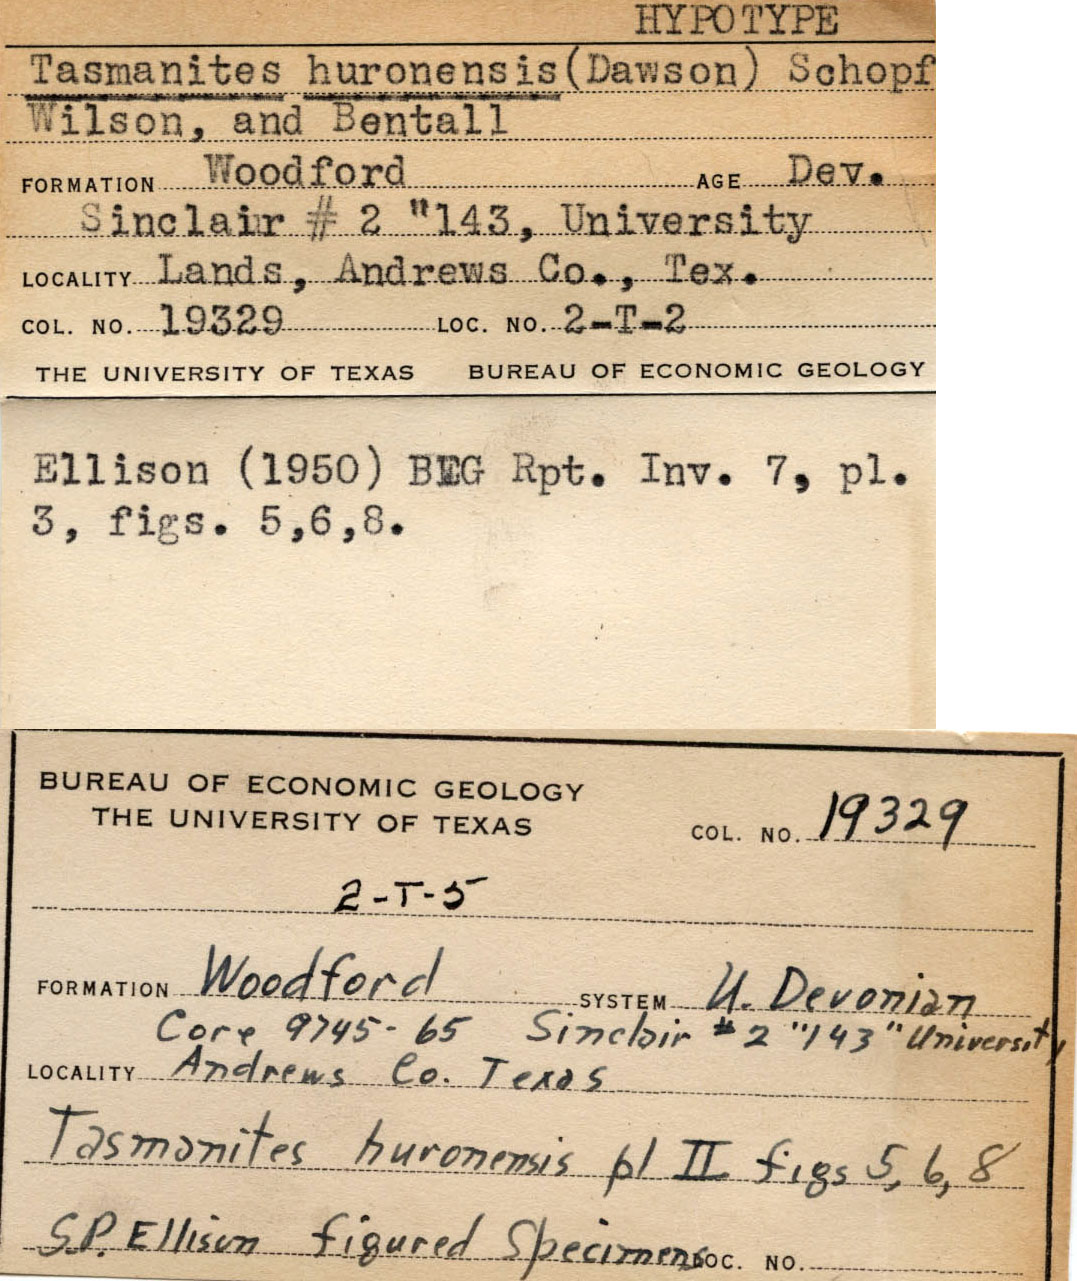 HYPOTYPE
Tasmanites huronensis (Dawson) Schopf
Wilson, and Bentall
FORMATION Woodford AGE Dev.
Sinclair # 2 "143, University
LOCALITY Lands, Andrews Co., Tex.
COL. NO. 19329 LOC. NO. 2-T-2
THE UNIVERSITY OF TEXAS BUREAU OF ECONOMIC GEOLOGY
Ellison (1950) BEG Rpt. Inv. 7, pl.
3, figs. 5,6,8.
BUREAU OF ECONOMIC GEOLOGY
THE UNIVERSITY OF TEXAS
COL. NO. 19329
2-T-5
FORMATION Woodford SYSTEM U. Devonian
Core 9745-65 Sinclair #2 "143" University
LOCALITY Andrews Co. Texas
Tasmanites huronensis pl II figs 5, 6, 8
S.P. Ellison figured Specimens LOC. NO.